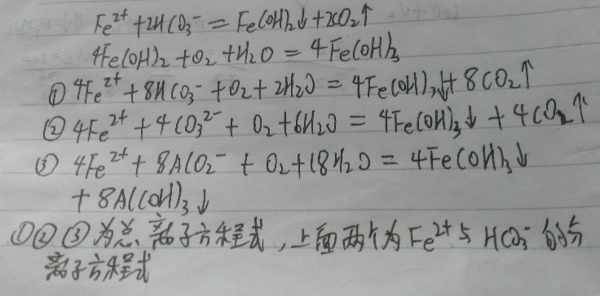 Fe²⁺+2HCO₃⁻=Fe(OH)₂↓+2CO₂↑
4Fe(OH)₂+O₂+H₂O=4Fe(OH)₃
①4Fe²⁺+8HCO₃⁻+O₂+2H₂O=4Fe(OH)₃↓+8CO₂↑
②4Fe²⁺+4CO₃²⁻+O₂+6H₂O=4Fe(OH)₃↓+4CO₂↑
③4Fe²⁺+8AlO₂⁻+O₂+18H₂O=4Fe(OH)₃↓
+8Al(OH)₃↓
①②③为总离子方程式,上面两个为Fe²⁺与HCO₃⁻的分
离子方程式